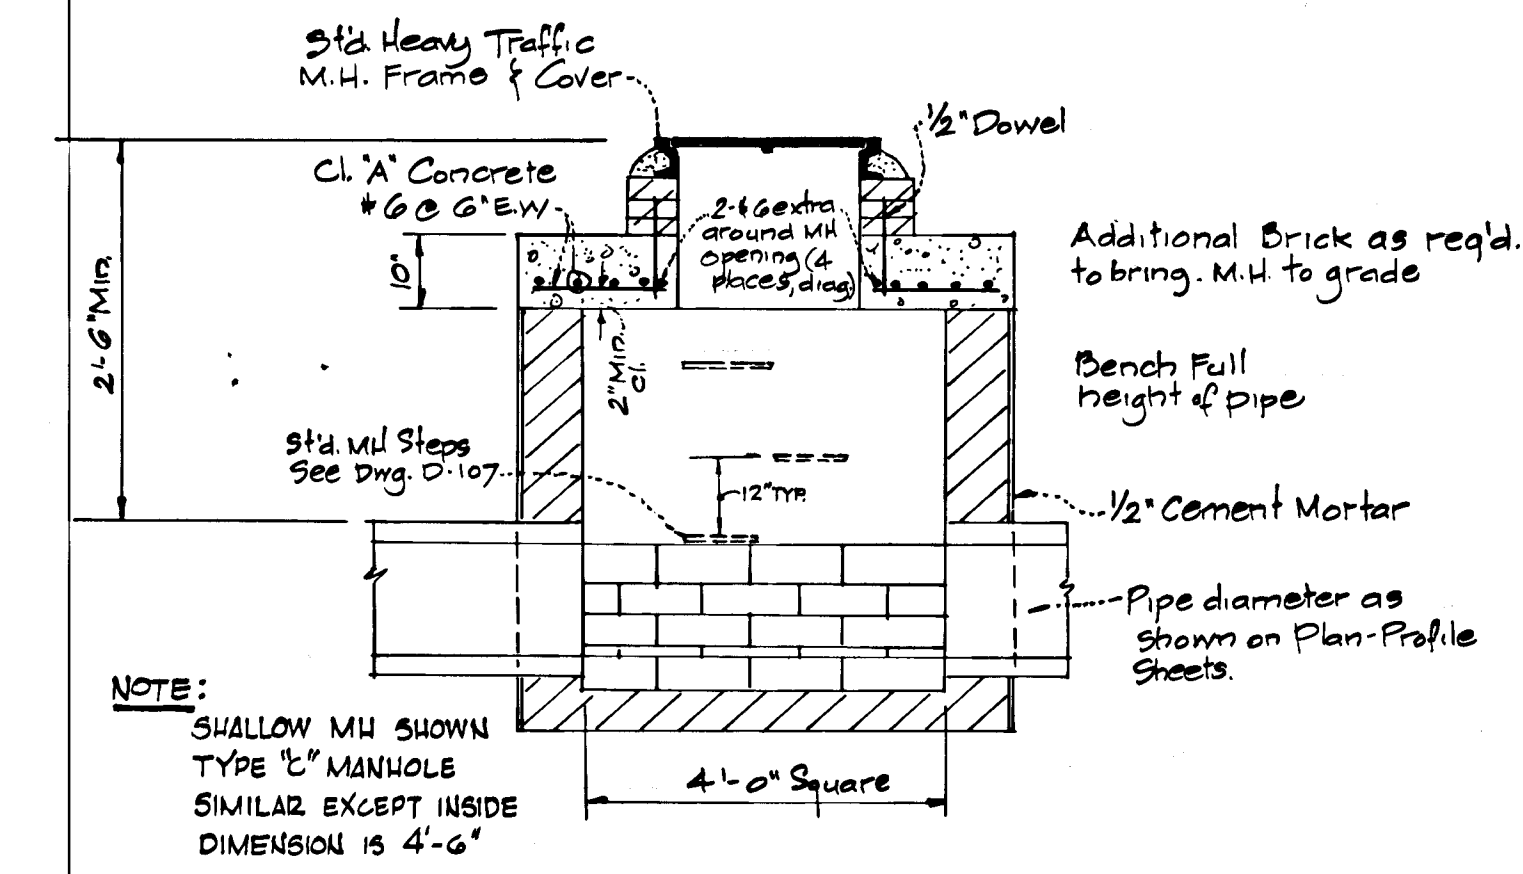 St'd. Heavy Traffic
M.H. Frame & Cover
1/2" Dowel
Cl. "A" Concrete
#6 @ 6" E.W
2-#6 extra
around MH
opening (4
places, diag.)
Additional Brick as req'd.
to bring. M.H. to grade
10"
2'-6" Min.
2" Min.
Cl.
Bench Full
height of pipe
St'd. MH Steps
See Dwg. D-107
12" TYP.
1/2" Cement Mortar
Pipe diameter as
shown on Plan-Profile
Sheets.
NOTE:
SHALLOW MH SHOWN
TYPE "C" MANHOLE
SIMILAR EXCEPT INSIDE
DIMENSION IS 4'-6"
4'-0" Square